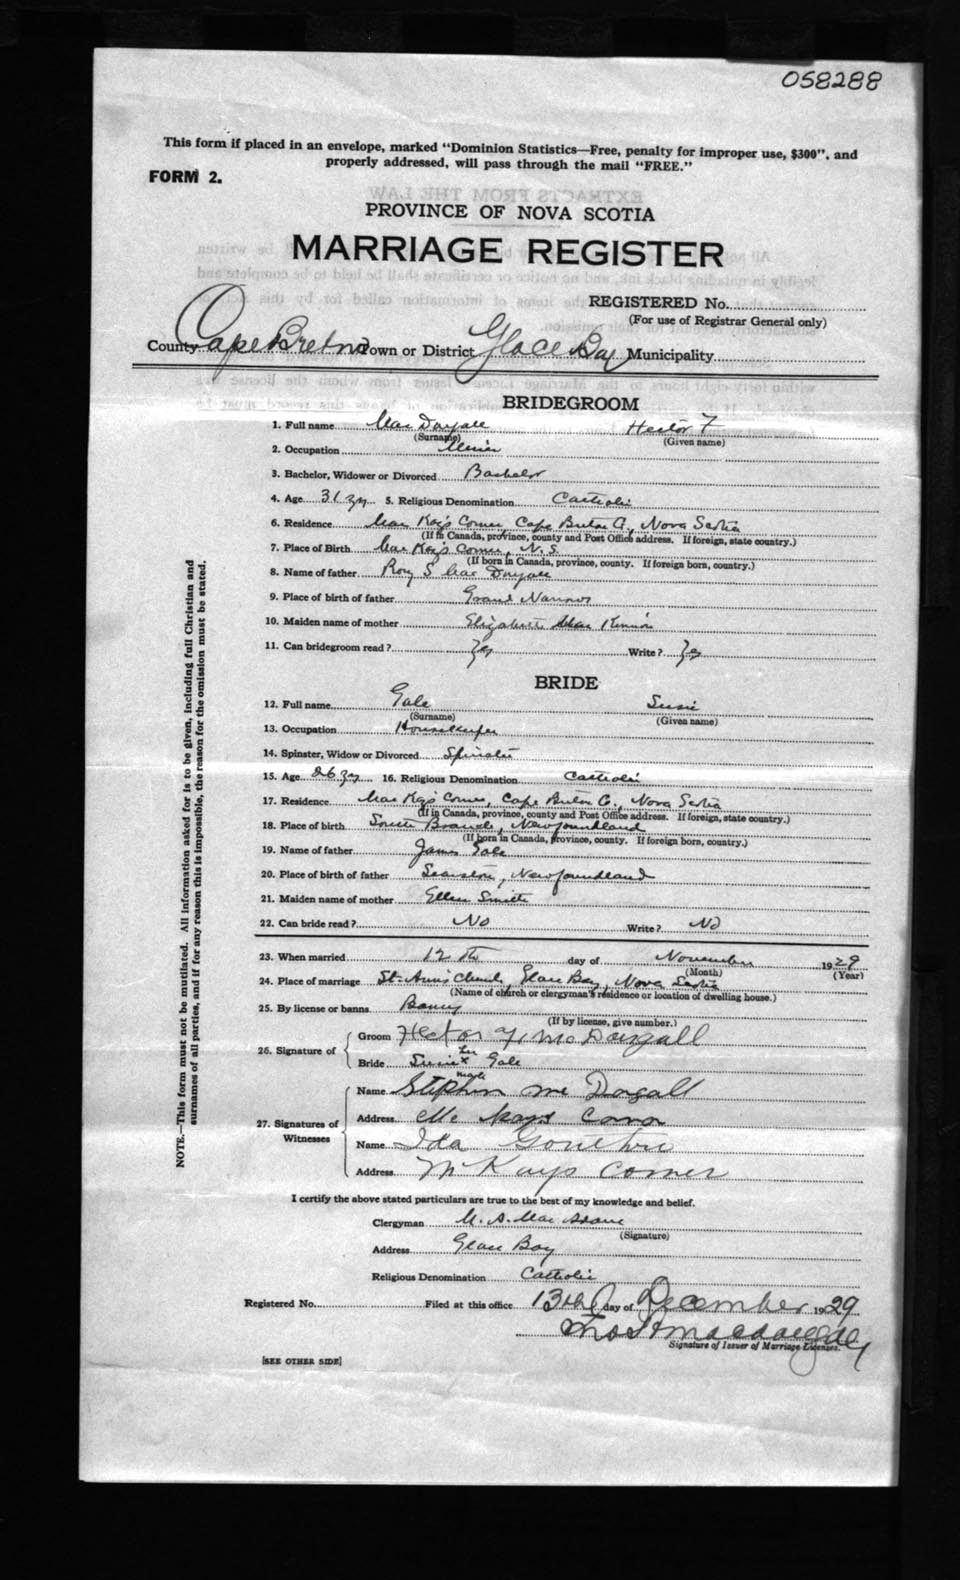 058288
This form if placed in an envelope, marked "Dominion Statistics—Free, penalty for improper use, $300", and
properly addressed, will pass through the mail "FREE."
FORM 2.
PROVINCE OF NOVA SCOTIA
MARRIAGE REGISTER
REGISTERED No.
(For use of Registrar General only)
County Cape Breton Town or District Glace Bay Municipality
BRIDEGROOM
1. Full name Mac Dougall Hector F
(Surname) (Given name)
2. Occupation Miner
3. Bachelor, Widower or Divorced Bachelor
4. Age 31 yrs 5. Religious Denomination Catholic
6. Residence Mac Kay's Corner, Cape Breton C., Nova Scotia
(If in Canada, province, county and Post Office address. If foreign, state country.)
7. Place of Birth Mac Kay's Corner, N.S.
(If born in Canada, province, county. If foreign born, country.)
8. Name of father Rory S Mac Dougall
9. Place of birth of father Grand Narrows
10. Maiden name of mother Elizabeth Mac Kinnon
11. Can bridegroom read? Yes Write? Yes
BRIDE
12. Full name Gale Susie
(Surname) (Given name)
13. Occupation Housekeeper
14. Spinster, Widow or Divorced Spinster
15. Age 26 yrs 16. Religious Denomination Catholic
17. Residence Mac Kay's Corner, Cape Breton C., Nova Scotia
(If in Canada, province, county and Post Office address. If foreign, state country.)
18. Place of birth South Branch, Newfoundland
(If born in Canada, province, county. If foreign born, country.)
19. Name of father James Gale
20. Place of birth of father Searston, Newfoundland
21. Maiden name of mother Ellen Smith
22. Can bride read? No Write? No
23. When married 12th day of November 1929
(Month) (Year)
24. Place of marriage St. Anns Church, Glace Bay, Nova Scotia
(Name of church or clergyman's residence or location of dwelling house.)
25. By license or banns Banns
(If by license, give number.)
26. Signature of Groom Hector F Mc Dougall
Bride Susie her x mark Gale
27. Signatures of Witnesses
Name Stephen Mc Dogall
Address Mc Kays Corner
Name Ida
Address Mc Kays Corner
I certify the above stated particulars are true to the best of my knowledge and belief.
Clergyman M. A. Mac
(Signature)
Address Glace Bay
Religious Denomination Catholic
Registered No. Filed at this office 13th day of December 1929
Signature of Issuer of Marriage Licenses.
[SEE OTHER SIDE]
NOTE.—This form must not be mutilated. All information asked for is to be given, including full Christian and
surnames of all parties, and if for any reason this is impossible, the reason for the omission must be stated.